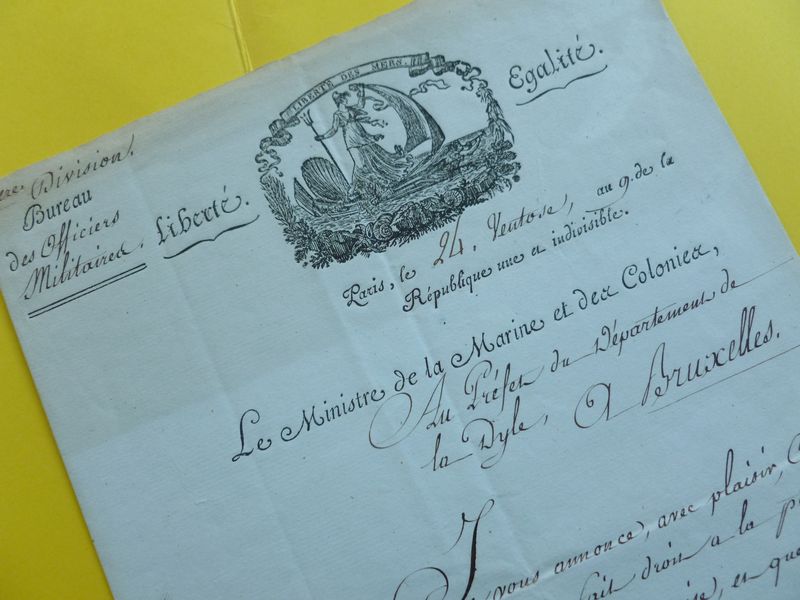 LIBERTÉ DES MERS.
ere Division.
Bureau
des Officiers
Militaires.
Liberté.
Egalité.
Paris, le 24. Ventose, an 9. de la
République une et indivisible.
Le Ministre de la Marine et des Colonies,
Au Préfet du Département de
la Dyle, A Bruxelles.
J
vous annonce, avec plaisir, C
fait droit a la p
en que